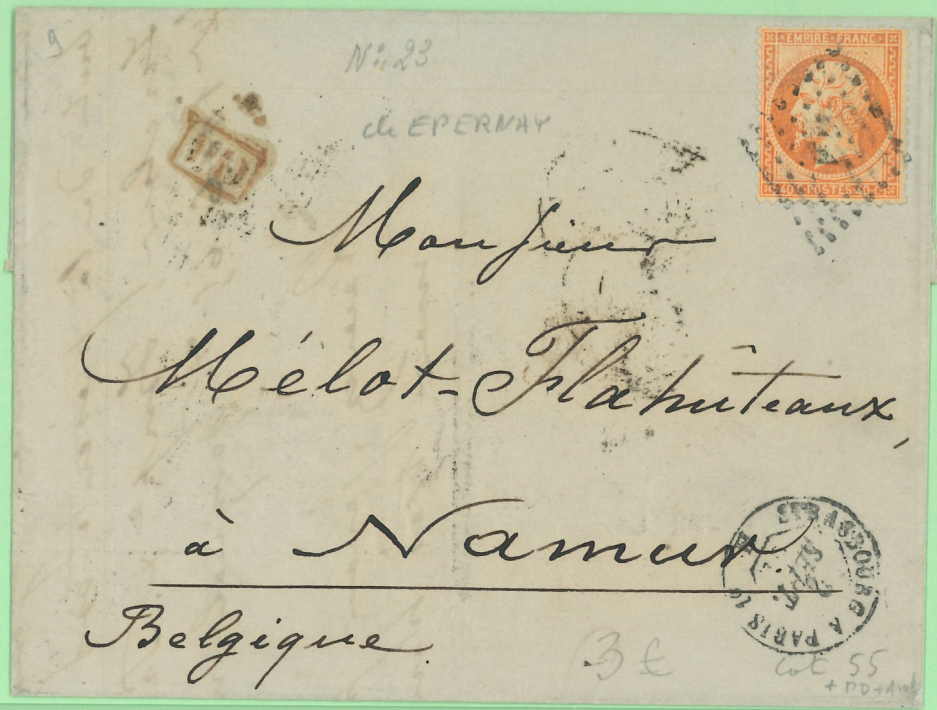 9
N° 23
de EPERNAY
EMPIRE FRANC
40 C POSTES 40 C
Monsieur
Mélot-Flahûteaux,
à Namur
Belgique
STRASBOURG A PARIS
3 €
cot 55
+ PD +